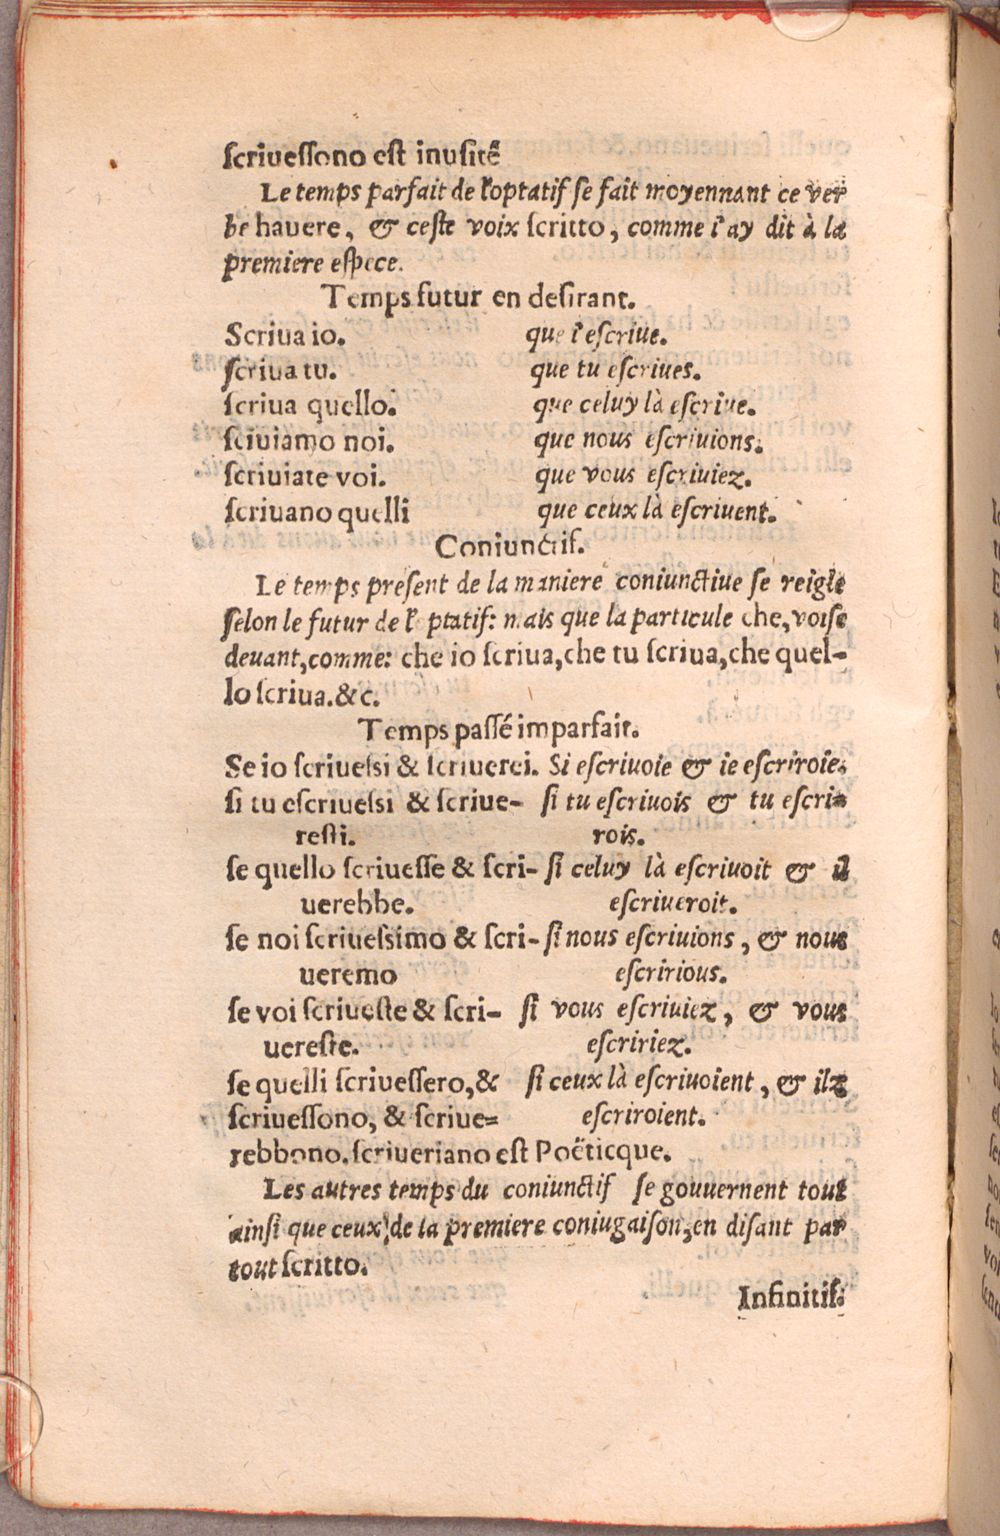 ſcriueſſono eſt inuſité
Le temps parfait de l'optatif ſe fait moyennant ce ver
be hauere, & ceſte voix ſcritto, comme i'ay dit à la
premiere eſpece.
Temps futur en deſirant.
Scriua io. que i'eſcriue.
ſcriua tu. que tu eſcriues.
ſcriua quello. que celuy là eſcriue.
ſciuiamo noi. que nous eſcriuions.
ſcriuiate voi. que vous eſcriuiez.
ſcriuano quelli que ceux là eſcriuent.
Coniunctif.
Le temps preſent de la maniere coniunctiue ſe reigle
ſelon le futur de l'optatif: mais que la particule che, voiſe
deuant, comme: che io ſcriua, che tu ſcriua, che quel-
lo ſcriua. &c.
Temps paſſé imparfait.
Se io ſcriueſsi & ſcriuerei. Si eſcriuoie & ie eſcriroie.
ſi tu eſcriueſsi & ſcriue- ſi tu eſcriuois & tu eſcri-
reſti. rois.
ſe quello ſcriueſſe & ſcri- ſi celuy là eſcriuoit & il
uerebbe. eſcriueroit.
ſe noi ſcriueſsimo & ſcri- ſi nous eſcriuions, & nous
ueremo eſcririous.
ſe voi ſcriueſte & ſcri- ſi vous eſcriuiez, & vous
uereſte. eſcririez.
ſe quelli ſcriueſſero, & ſi ceux là eſcriuoient, & ilz
ſcriueſſono, & ſcriue= eſcriroient.
rebbono. ſcriueriano eſt Poëticque.
Les autres temps du coniunctif ſe gouuernent tout
ainſi que ceux de la premiere coniugaiſon, en diſant par
tout ſcritto.
Infinitif.